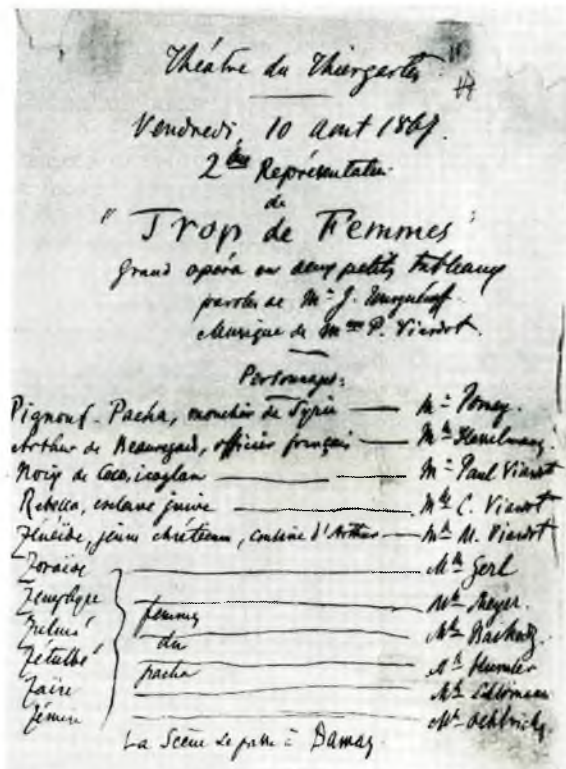 Théâtre du Thiergarten
Vendredi, 10 Aout 1867.
2ème Représentation
de
"Trop de Femmes"
Grand opéra en deux petits tableaux
paroles de Mr J. Tourguéneff.
Musique de Mme P. Viardot.
Personnages:
Pignouf-Pacha, mouchir de Syrie — Mr Pomey.
Arthur de Beauregard, officier français — Mlle Hasselmans
Noix de Coco, icoglan — Mr Paul Viardot
Rebecca, esclave juive — Mlle C. Viardot
Zénéide, jeune chrétienne, cousine d'Arthur — Mlle M. Viardot
Zoraïde — Mlle Gerl
femmes — Mlle Meyer.
Zulmé du
Zétulbé pacha
Zaïre
La Scène se passe à Damas